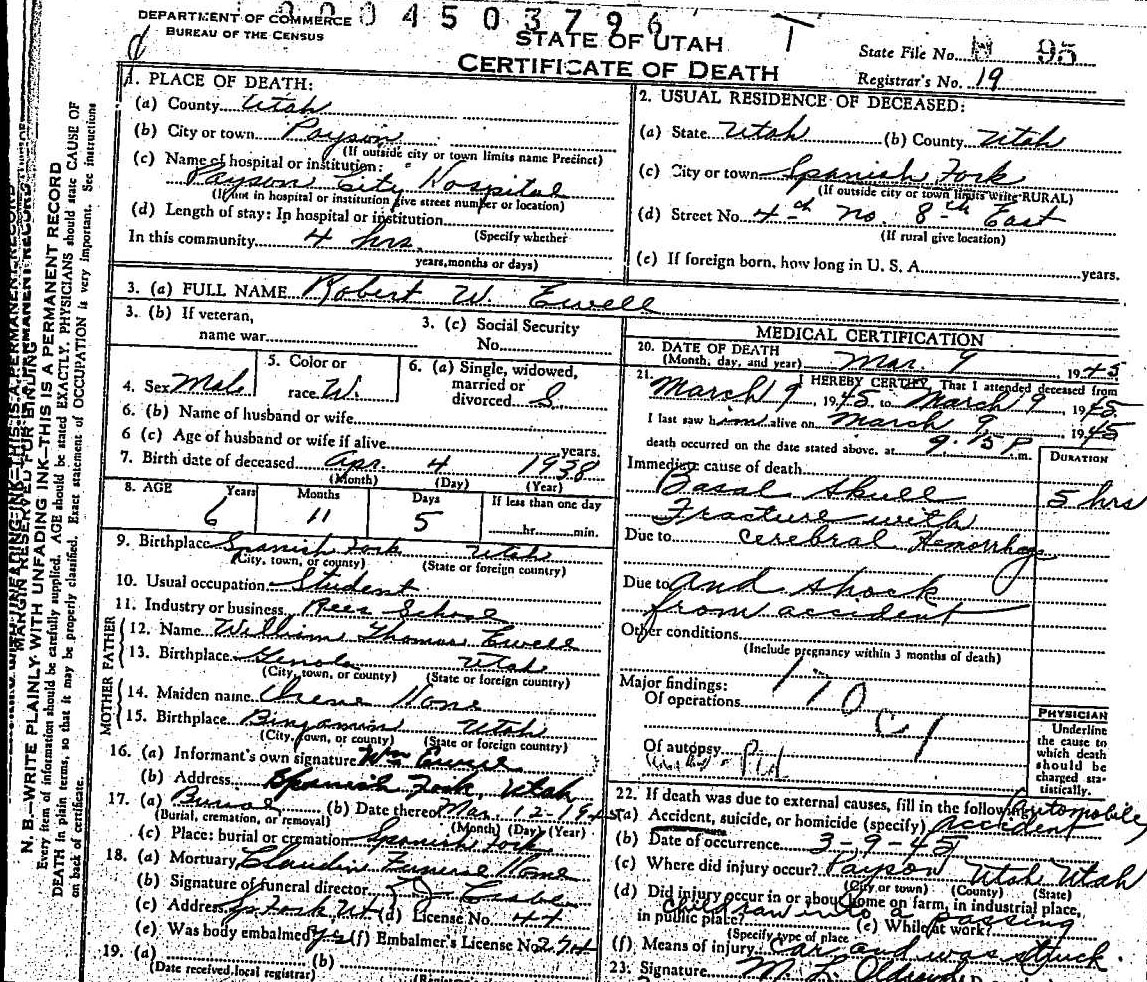 0004503796
DEPARTMENT OF COMMERCE
BUREAU OF THE CENSUS
STATE OF UTAH
CERTIFICATE OF DEATH
State File No. 95
Registrar's No. 19
1. PLACE OF DEATH:
(a) County Utah
(b) City or town Payson
(If outside city or town limits name Precinct)
(c) Name of hospital or institution:
Payson City Hospital
(If not in hospital or institution give street number or location)
(d) Length of stay: In hospital or institution
(Specify whether
In this community 4 hrs.
years, months or days)
2. USUAL RESIDENCE OF DECEASED:
(a) State Utah (b) County Utah
(c) City or town Spanish Fork
(If outside city or town limits write RURAL)
(d) Street No. 4th no. 8th East
(If rural give location)
(e) If foreign born, how long in U. S. A. years.
3. (a) FULL NAME Robert W. Ewell
3. (b) If veteran,
name war
3. (c) Social Security
No.
4. Sex Male
5. Color or
race W.
6. (a) Single, widowed,
married or
divorced S.
6. (b) Name of husband or wife
6 (c) Age of husband or wife if alive years.
7. Birth date of deceased Apr. 4 1938
(Month) (Day) (Year)
8. AGE Years Months Days If less than one day
6 11 5 hr. min.
9. Birthplace Spanish Fork Utah
(City, town, or county) (State or foreign country)
10. Usual occupation Student
11. Industry or business Rees School
FATHER
12. Name William Thomas Ewell
13. Birthplace Genola Utah
(City, town, or county) (State or foreign country)
MOTHER
14. Maiden name Irene Hone
15. Birthplace Binjamin Utah
(City, town, or county) (State or foreign country)
16. (a) Informant's own signature Wm Ewell
(b) Address Spanish Fork, Utah
17. (a) Burial (b) Date thereof Mar. 12-1945
(Burial, cremation, or removal) (Month) (Day) (Year)
(c) Place: burial or cremation Spanish Fork
18. (a) Mortuary Claudin Funeral Home
(b) Signature of funeral director
(c) Address Sp Fork Ut (d) License No. 44
(e) Was body embalmed yes (f) Embalmer's License No. 274
19. (a) (b)
(Date received local registrar)
MEDICAL CERTIFICATION
20. DATE OF DEATH
(Month, day, and year) Mar. 9 1945
21. I HEREBY CERTIFY, That I attended deceased from
March 9 1945 to March 9 1945
I last saw him alive on March 9 1945
death occurred on the date stated above, at 9:15 P.m.
DURATION
Immediate cause of death
Basal Skull 5 hrs
Fracture with
Due to cerebral Hemorrhage
Due to And shock
from accident
Other conditions
(Include pregnancy within 3 months of death)
Major findings:
Of operations
170 C1
Of autopsy
PHYSICIAN
Underline
the cause to
which death
should be
charged sta-
tistically.
22. If death was due to external causes, fill in the following:
(a) Accident, suicide, or homicide (specify) Automobile, accident
(b) Date of occurrence 3-9-45
(c) Where did injury occur? Payson Utah Utah
(City or town) (County) (State)
(d) Did injury occur in or about home on farm, in industrial place,
in public place? (e) While at work?
(Specify type of place
child ran into a passing
(f) Means of injury car and was struck.
23. Signature
N. B.—WRITE PLAINLY WITH UNFADING INK—THIS IS A PERMANENT RECORD
Every item of information should be carefully supplied. AGE should be stated EXACTLY. PHYSICIANS should state CAUSE OF
DEATH in plain terms, so that it may be properly classified. Exact statement of OCCUPATION is very important. See instructions
on back of certificate.
MARGIN RESERVED FOR BINDING